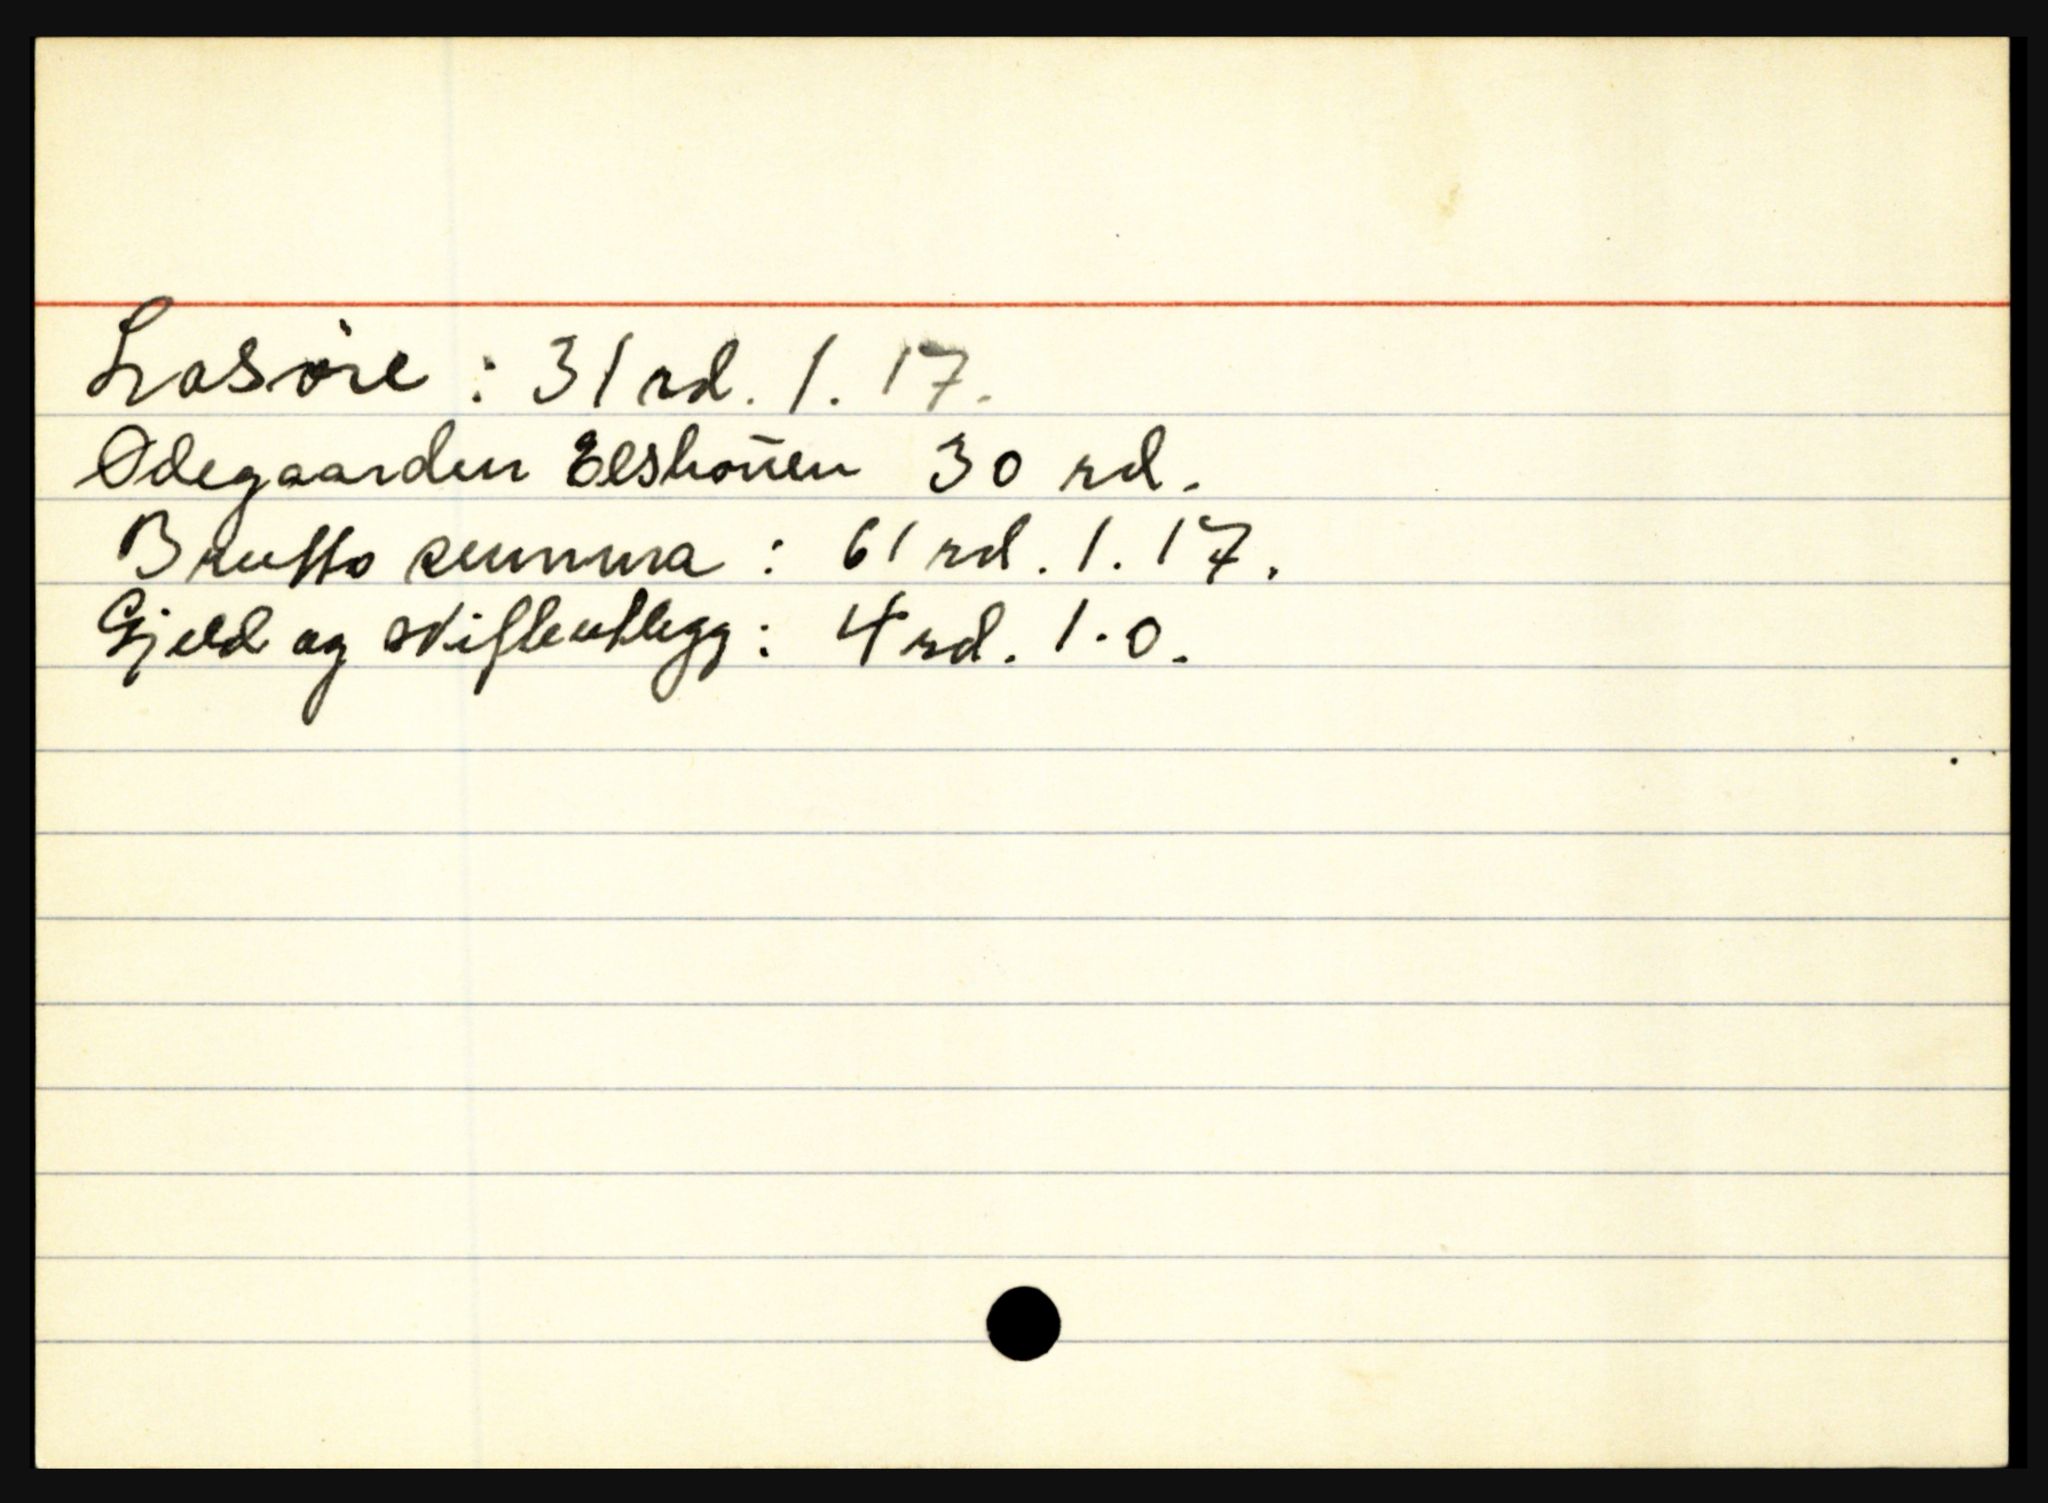 Lasøre : 31 rd. 1. 17.
Ødegaarden 30 rd.
Brutto summa : 61 rd. 1. 17.
Gjeld og skifteutlegg : 4 rd. 1. 0.